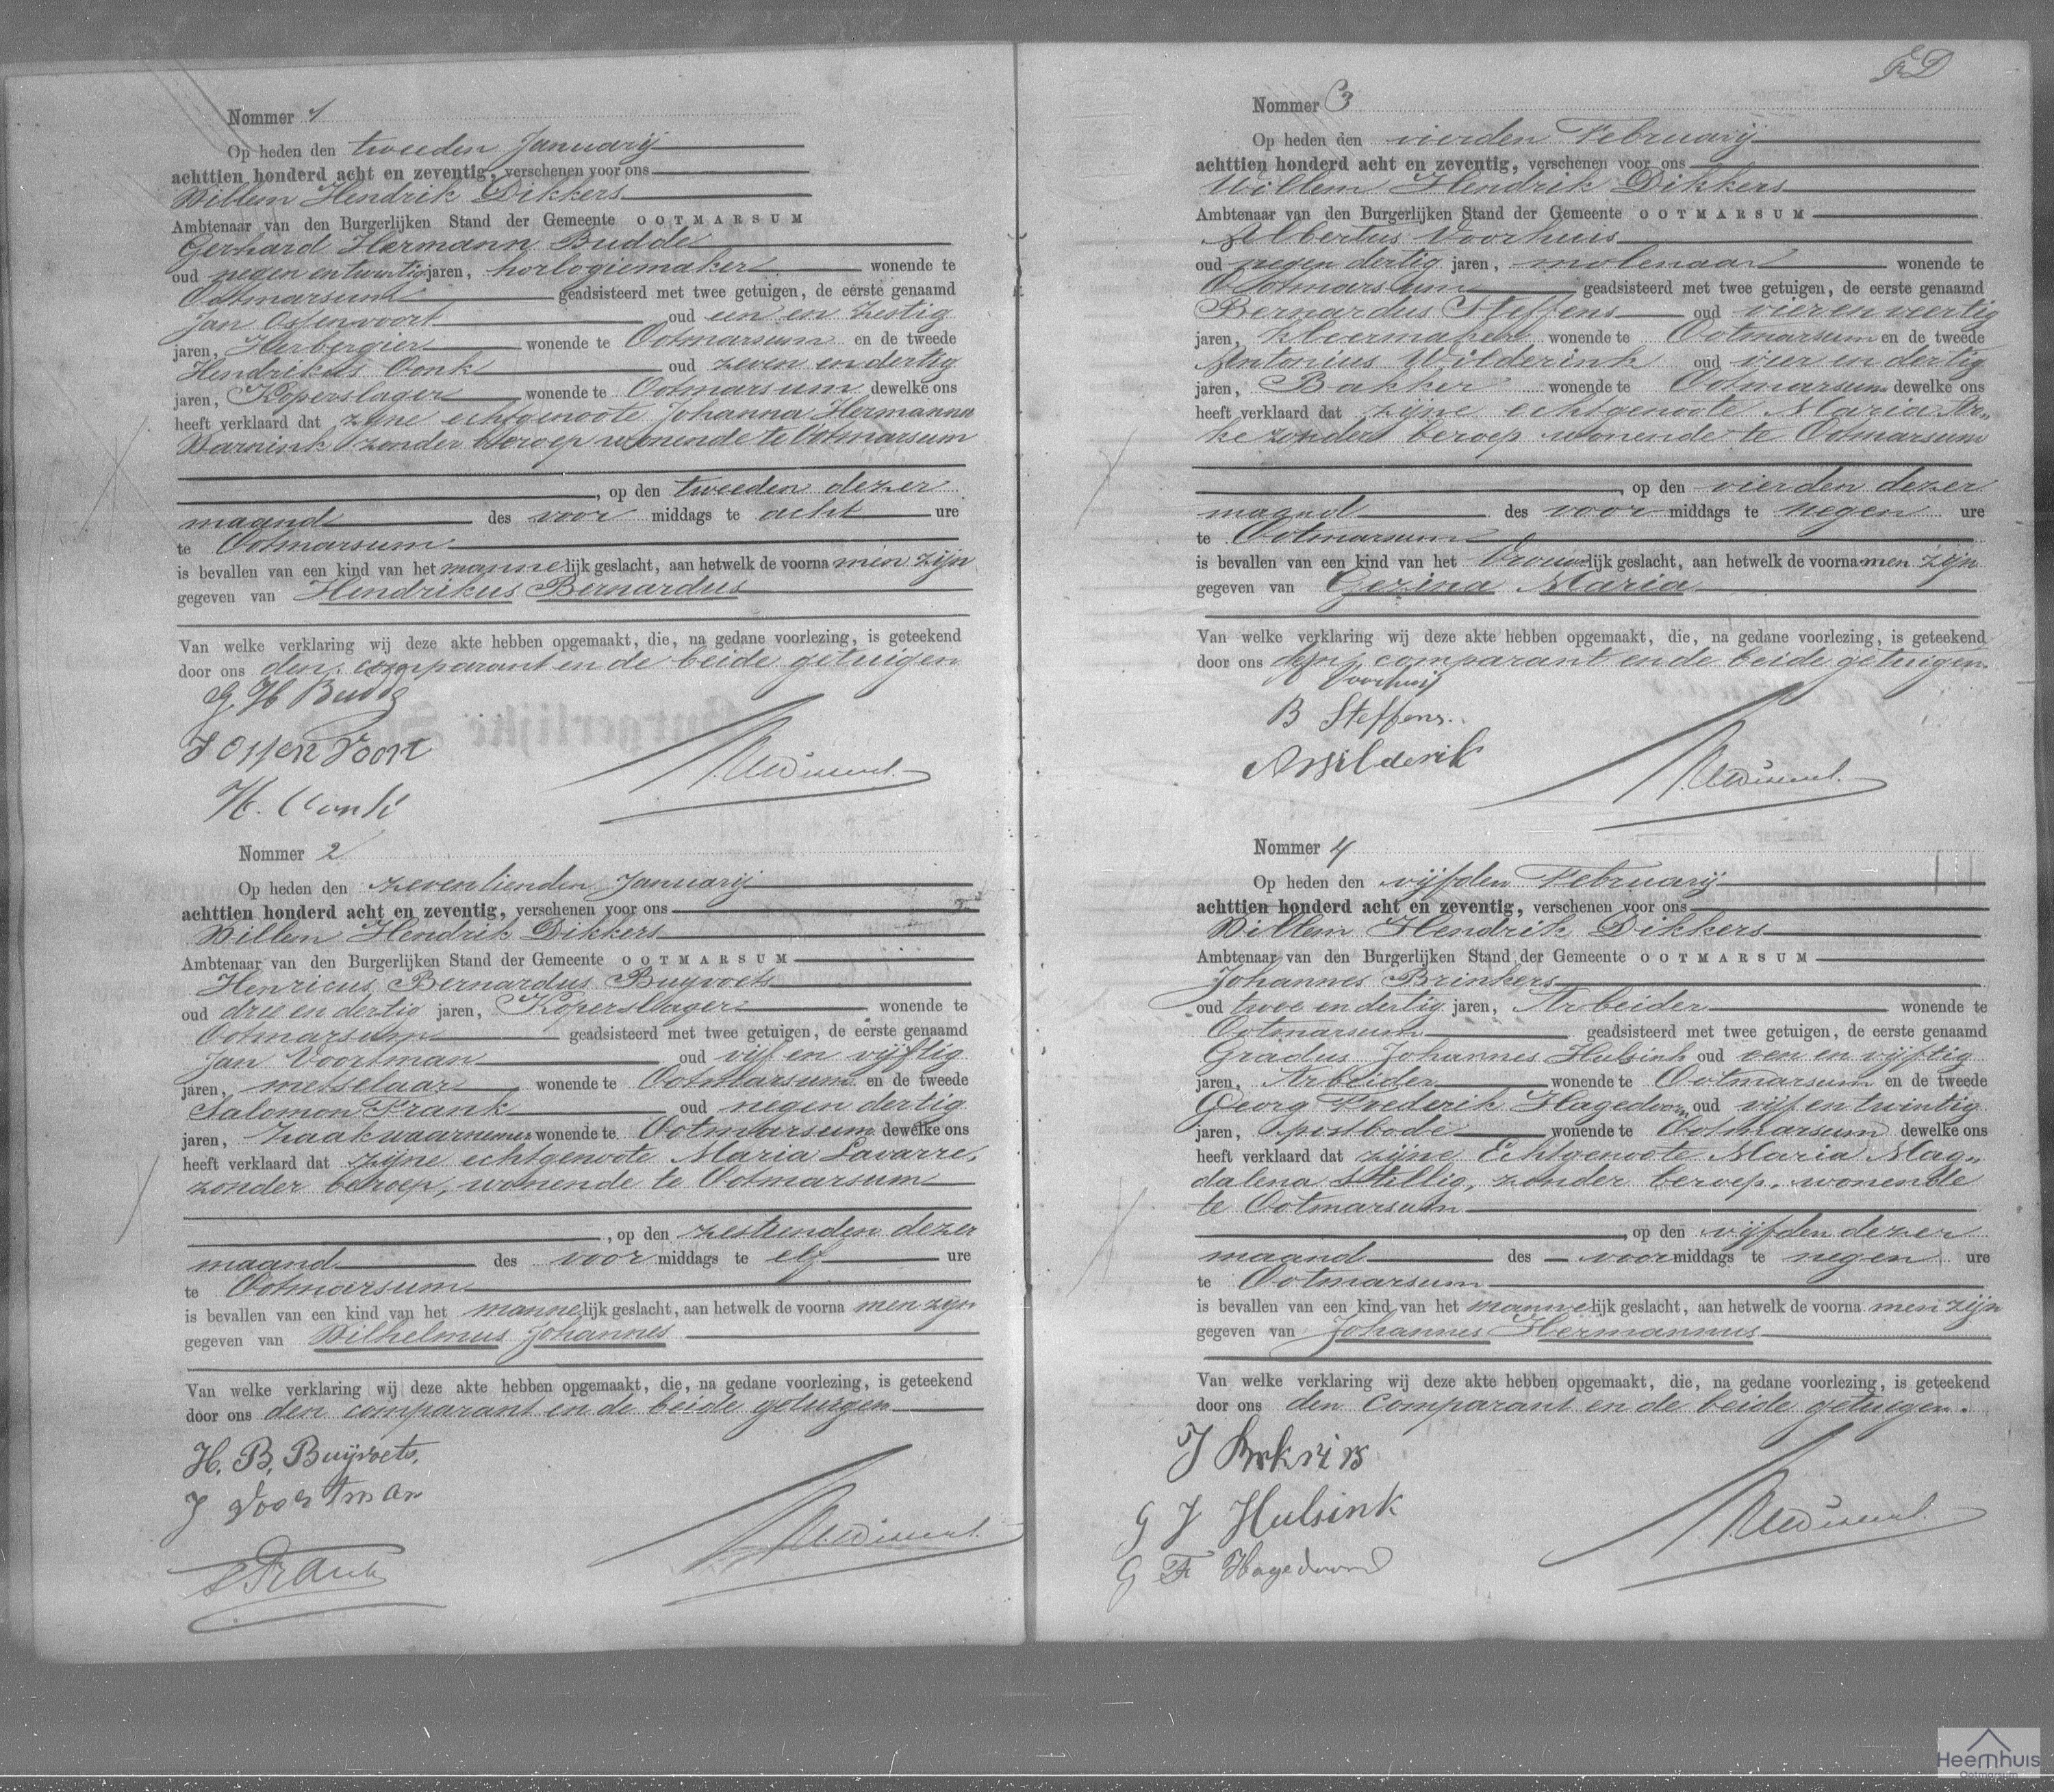 Nommer 1
Op heden den tweeden Januarij
achttien honderd acht en zeventig, verschenen voor ons
Willem Hendrik Dikkers
Ambtenaar van den Burgerlijken Stand der Gemeente OOTMARSUM
Gerhard Hermann Budde
oud negen en twintig jaren, horlogiemaker wonende te
Ootmarsum geadsisteerd met twee getuigen, de eerste genaamd
Jan Ossenvoort oud een en zestig
jaren, Herbergier wonende te Ootmarsum en de tweede
Hendrikus Oonk oud zeven en dertig
jaren, Koperslager wonende te Ootmarsum dewelke ons
heeft verklaard dat zijne echtgenoote Johanna Hermanna
Warnink zonder beroep wonende te Ootmarsum
, op den tweeden dezer
maand des voor middags te acht ure
te Ootmarsum
is bevallen van een kind van het mannelijk geslacht, aan hetwelk de voornamen zijn
gegeven van Hendrikus Bernardus
Van welke verklaring wij deze akte hebben opgemaakt, die, na gedane voorlezing, is geteekend
door ons den comparant en de beide getuigen
G. H. Budde
J Ossenvoort
H. Oonk
Nommer 2
Op heden den zeventienden Januarij
achttien honderd acht en zeventig, verschenen voor ons
Willem Hendrik Dikkers
Ambtenaar van den Burgerlijken Stand der Gemeente OOTMARSUM
Henricus Bernardus Buyvoets
oud drie en dertig jaren, Koperslager wonende te
Ootmarsum geadsisteerd met twee getuigen, de eerste genaamd
Jan Voortman oud vijf en vijftig
jaren, metselaar wonende te Ootmarsum en de tweede
Salomon Frank oud negen dertig
jaren, zaakwaarnemer wonende te Ootmarsum dewelke ons
heeft verklaard dat zijne echtgenoote Maria Lavarre,
zonder beroep, wonende te Ootmarsum
, op den zestienden dezer
maand des voor middags te elf ure
te Ootmarsum
is bevallen van een kind van het mannelijk geslacht, aan hetwelk de voornamen zijn
gegeven van Wilhelmus Johannes
Van welke verklaring wij deze akte hebben opgemaakt, die, na gedane voorlezing, is geteekend
door ons den comparant en de beide getuigen
H. B. Buyvoets.
J Voortman
S Frank
Nommer 3
Op heden den vierden Februarij
achttien honderd acht en zeventig, verschenen voor ons
Willem Hendrik Dikkers
Ambtenaar van den Burgerlijken Stand der Gemeente OOTMARSUM
Albertus Voorhuis
oud negen dertig jaren, molenaar wonende te
Ootmarsum geadsisteerd met twee getuigen, de eerste genaamd
Bernardus Steffens oud vier en veertig
jaren, kleermaker wonende te Ootmarsum en de tweede
Antonius Wilderink oud vier en dertig
jaren, Bakker wonende te Ootmarsum dewelke ons
heeft verklaard dat zijne echtgenoote Maria
zonder beroep wonende te Ootmarsum
, op den vierden dezer
maand des voor middags te negen ure
te Ootmarsum
is bevallen van een kind van het vrouwelijk geslacht, aan hetwelk de voornamen zijn
gegeven van Gezina Maria
Van welke verklaring wij deze akte hebben opgemaakt, die, na gedane voorlezing, is geteekend
door ons den comparant en de beide getuigen.
A Voorhuis
B Steffens.
A Wilderik
Nommer 4
Op heden den vijfden Februarij
achttien honderd acht en zeventig, verschenen voor ons
Willem Hendrik Dikkers
Ambtenaar van den Burgerlijken Stand der Gemeente OOTMARSUM
Johannes Brinkers
oud twee en dertig jaren, Arbeider wonende te
Ootmarsum geadsisteerd met twee getuigen, de eerste genaamd
Gradus Johannes Hulsink oud een en vijftig
jaren, Arbeider wonende te Ootmarsum en de tweede
Georg Frederik Hagedoorn oud vijf en twintig
jaren, postbode wonende te Ootmarsum dewelke ons
heeft verklaard dat zijne Echtgenoote Maria Mag„
dalena Stillig, zonder beroep, wonende
te Ootmarsum
, op den vijfden dezer
maand des voor middags te negen ure
te Ootmarsum
is bevallen van een kind van het mannelijk geslacht, aan hetwelk de voornamen zijn
gegeven van Johannes Hermannus
Van welke verklaring wij deze akte hebben opgemaakt, die, na gedane voorlezing, is geteekend
door ons den Comparant en de beide getuigen.
G J Hulsink
G F Hagedoorn
Heemhuis
Ootmarsum